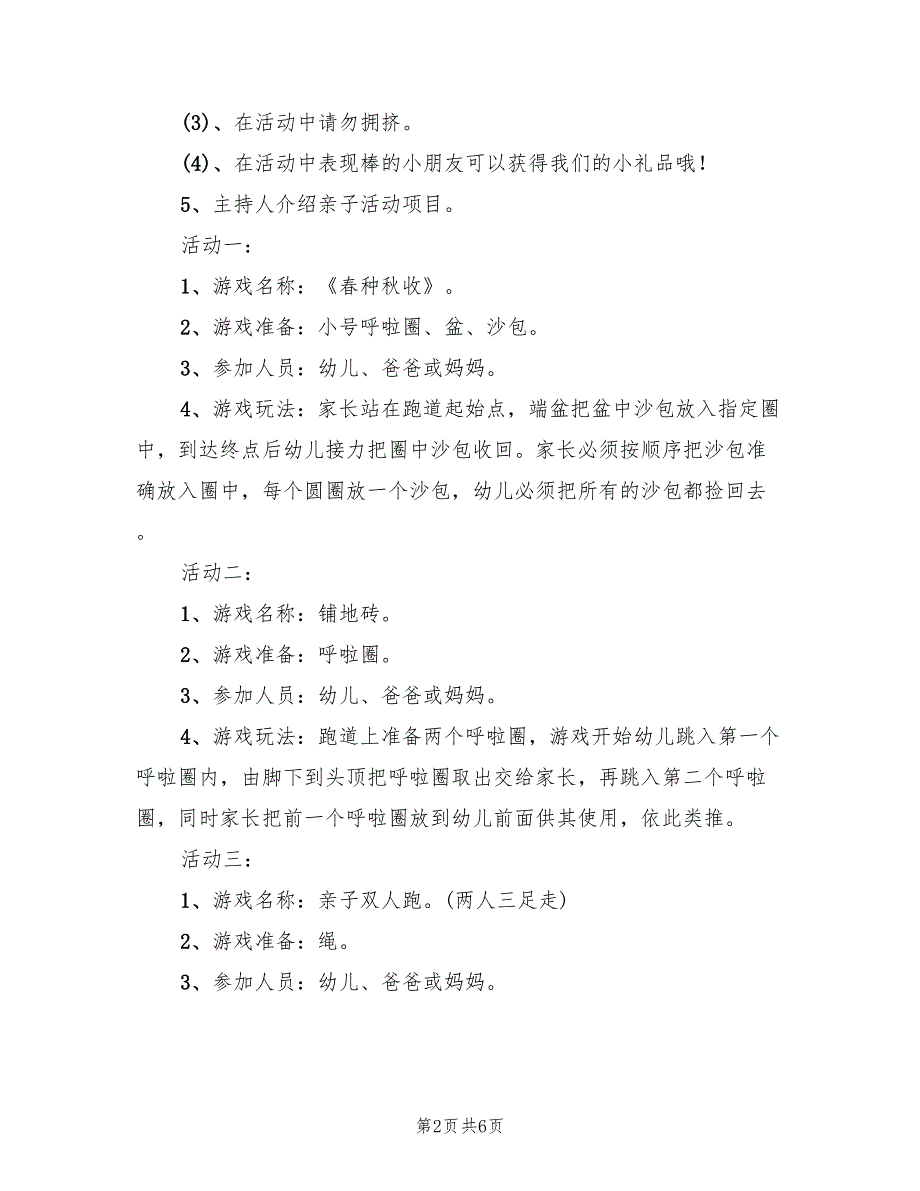 (3)、在活动中请勿拥挤。
(4)、在活动中表现棒的小朋友可以获得我们的小礼品哦！
5、主持人介绍亲子活动项目。
活动一：
1、游戏名称：《春种秋收》。
2、游戏准备：小号呼啦圈、盆、沙包。
3、参加人员：幼儿、爸爸或妈妈。
4、游戏玩法：家长站在跑道起始点，端盆把盆中沙包放入指定圈
中，到达终点后幼儿接力把圈中沙包收回。家长必须按顺序把沙包准
确放入圈中，每个圆圈放一个沙包，幼儿必须把所有的沙包都捡回去
。
活动二：
1、游戏名称：铺地砖。
2、游戏准备：呼啦圈。
3、参加人员：幼儿、爸爸或妈妈。
4、游戏玩法：跑道上准备两个呼啦圈，游戏开始幼儿跳入第一个
呼啦圈内，由脚下到头顶把呼啦圈取出交给家长，再跳入第二个呼啦
圈，同时家长把前一个呼啦圈放到幼儿前面供其使用，依此类推。
活动三：
1、游戏名称：亲子双人跑。(两人三足走)
2、游戏准备：绳。
3、参加人员：幼儿、爸爸或妈妈。
第2页共6页